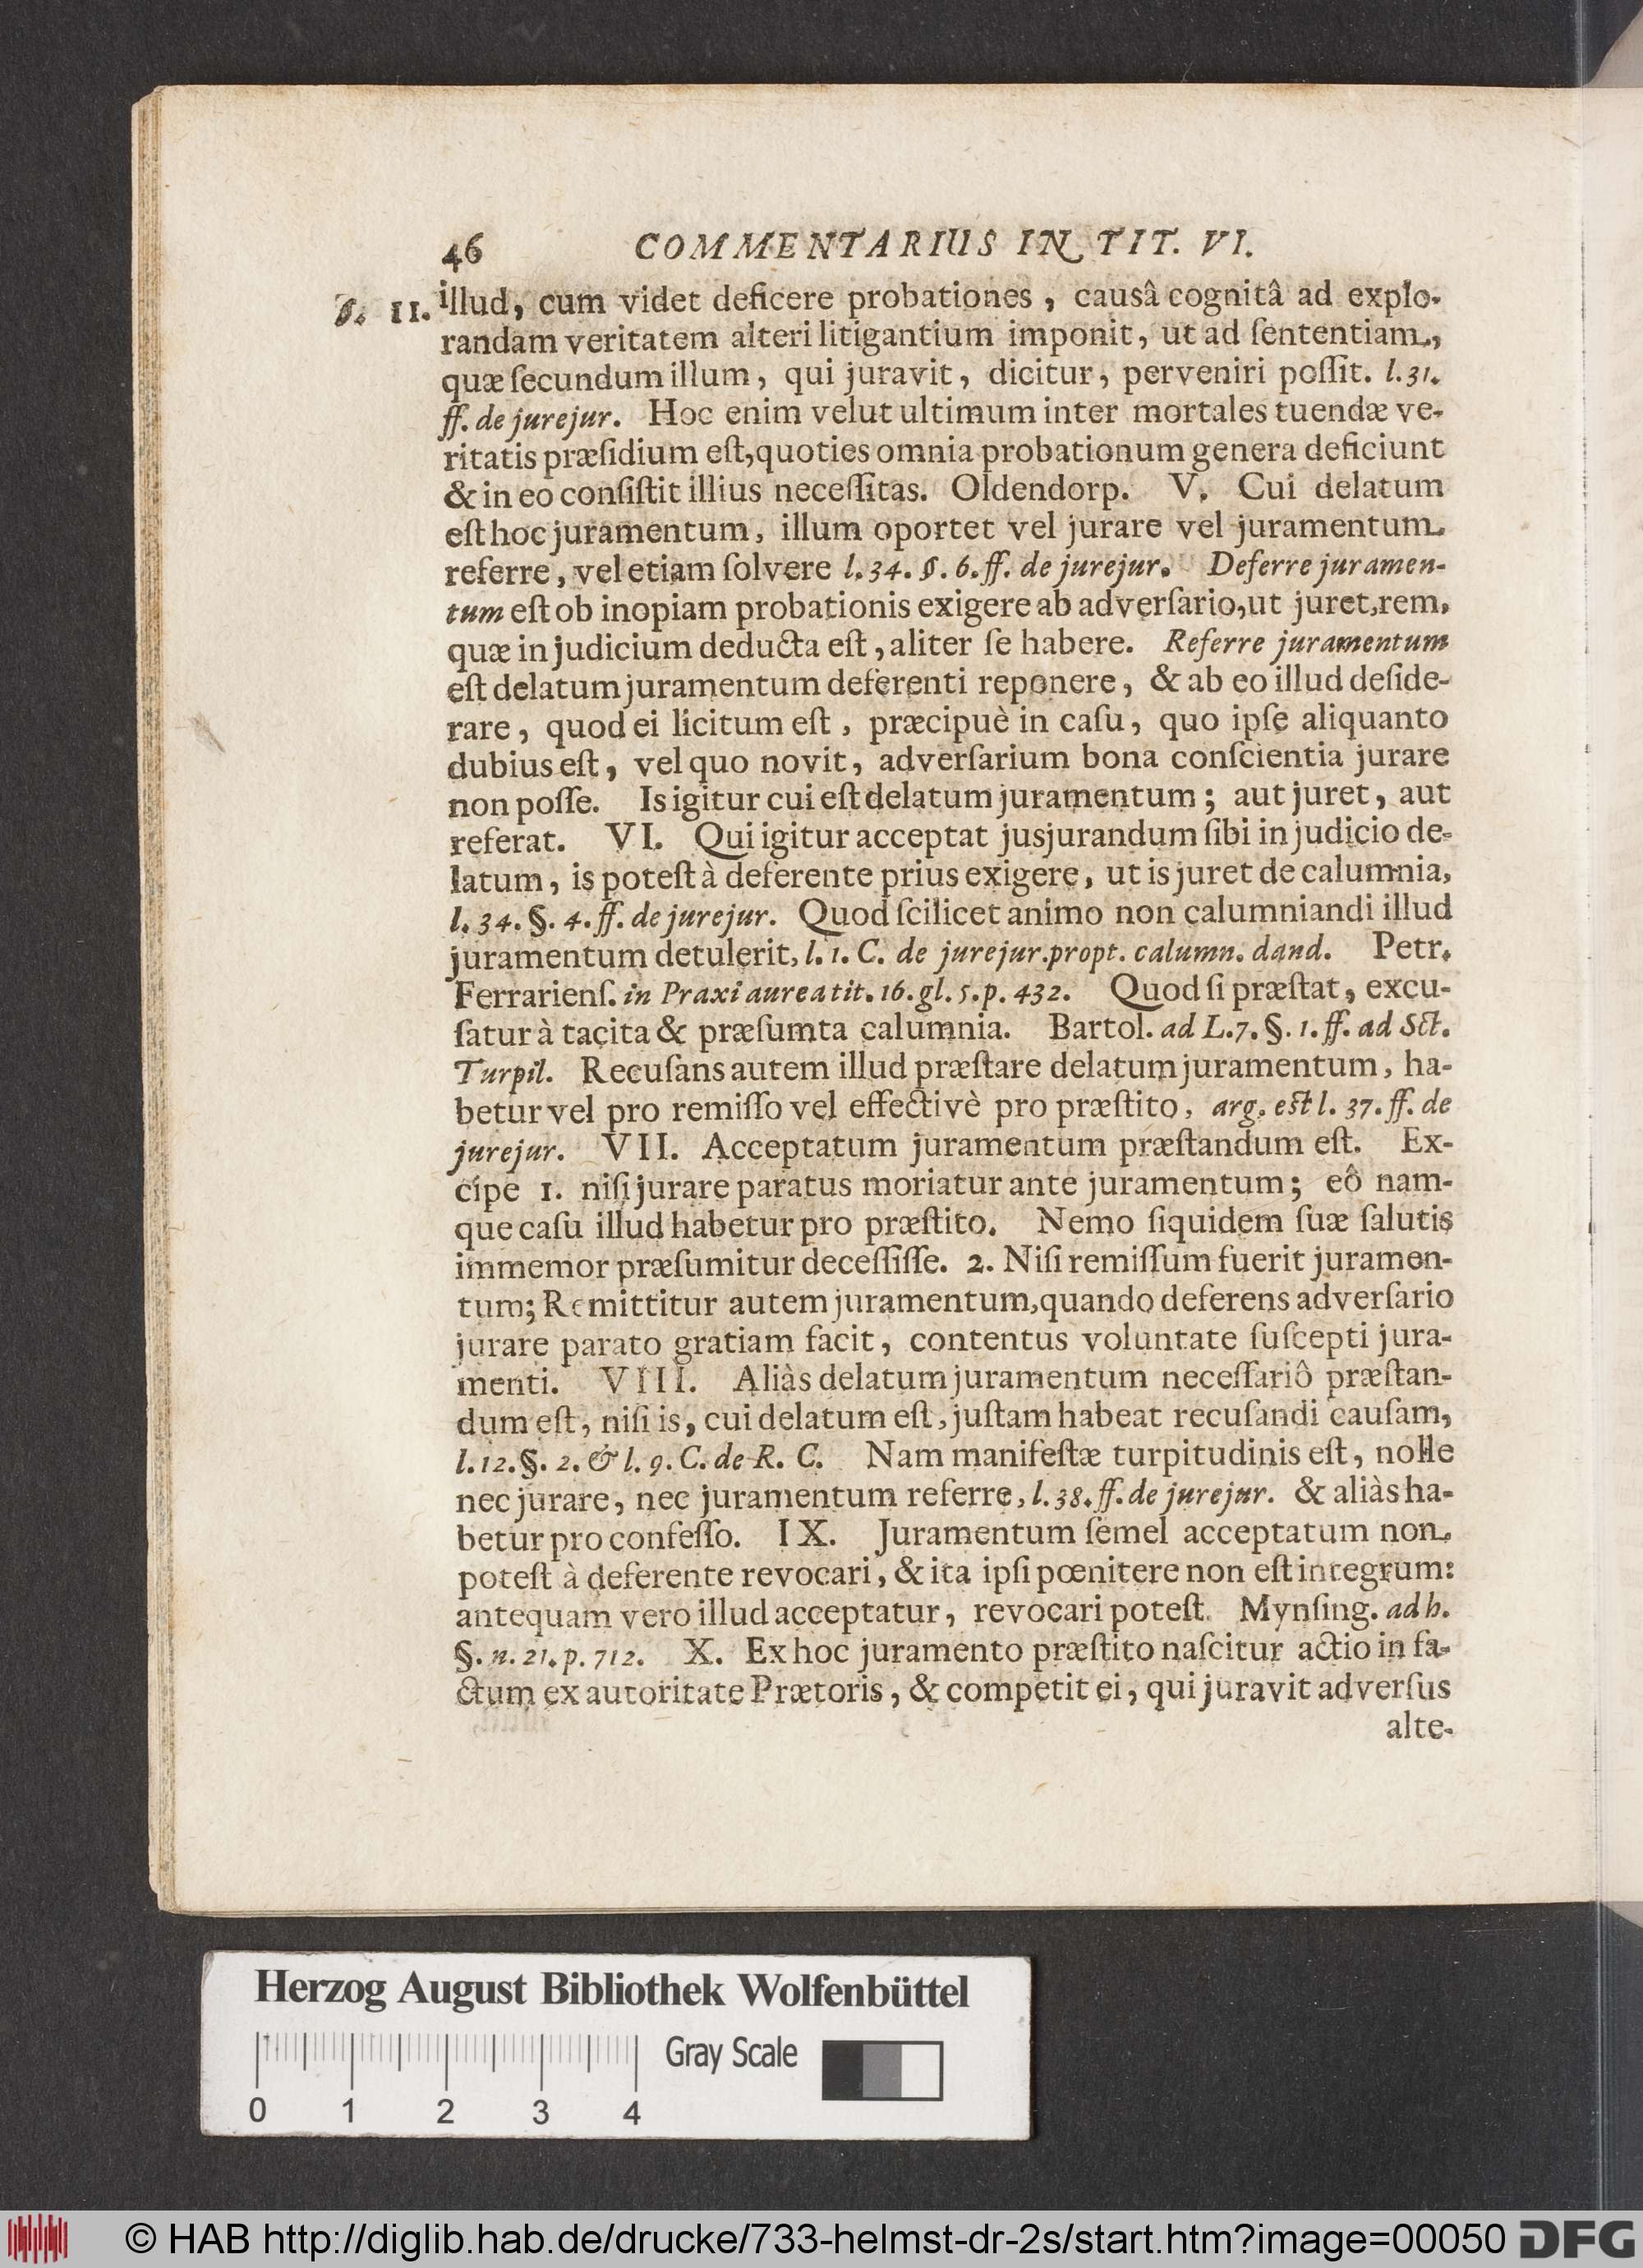 46 COMMENTARIUS IN TIT. VI.
§. 11. illud, cum videt deficere probationes, causâ cognitâ ad explo-
randam veritatem alteri litigantium imponit, ut ad ſententiam,
quæ ſecundum illum, qui juravit, dicitur, perveniri poſſit. l. 31.
ff. de jurejur. Hoc enim velut ultimum inter mortales tuendæ ve-
ritatis præſidium eſt, quoties omnia probationum genera deficiunt
& in eo conſiſtit illius neceſſitas. Oldendorp. V. Cui delatum
eſt hoc juramentum, illum oportet vel jurare vel juramentum
referre, vel etiam ſolvere l. 34. §. 6. ff. de jurejur. Deferre juramen-
tum eſt ob inopiam probationis exigere ab adverſario, ut juret, rem,
quæ in judicium deducta eſt, aliter ſe habere. Referre juramentum
eſt delatum juramentum deferenti reponere, & ab eo illud deſide-
rare, quod ei licitum eſt, præcipuè in caſu, quo ipſe aliquanto
dubius eſt, vel quo novit, adverſarium bona conſcientia jurare
non poſſe. Is igitur cui eſt delatum juramentum; aut juret, aut
referat. VI. Qui igitur acceptat jusjurandum ſibi in judicio de-
latum, is poteſt à deferente prius exigere, ut is juret de calumnia,
l. 34. §. 4. ff. de jurejur. Quod ſcilicet animo non calumniandi illud
juramentum detulerit, l. 1. C. de jurejur. propt. calumn. dand. Petr.
Ferrarienſ. in Praxi aurea tit. 16. gl. 5. p. 432. Quod ſi præſtat, excu-
ſatur à tacita & præſumta calumnia. Bartol. ad L. 7. §. 1. ff. ad Sct.
Turpil. Recuſans autem illud præſtare delatum juramentum, ha-
betur vel pro remiſſo vel effectivè pro præſtito, arg. eſt l. 37. ff. de
jurejur. VII. Acceptatum juramentum præſtandum eſt. Ex-
cipe 1. niſi jurare paratus moriatur ante juramentum; eô nam-
que caſu illud habetur pro præſtito. Nemo ſiquidem ſuæ ſalutis
immemor præſumitur deceſſiſſe. 2. Niſi remiſſum fuerit juramen-
tum; Remittitur autem juramentum, quando deferens adverſario
jurare parato gratiam facit, contentus voluntate ſuſcepti jura-
menti. VIII. Aliàs delatum juramentum neceſſariô præſtan-
dum eſt, niſi is, cui delatum eſt, juſtam habeat recuſandi cauſam,
l. 12. §. 2. & l. 9. C. de R. C. Nam manifeſtæ turpitudinis eſt, nolle
nec jurare, nec juramentum referre, l. 38. ff. de jurejur. & aliàs ha-
betur pro confeſſo. IX. Juramentum ſemel acceptatum non
poteſt à deferente revocari, & ita ipſi pœnitere non eſt integrum:
antequam vero illud acceptatur, revocari poteſt. Mynſing. ad h.
§. n. 21. p. 712. X. Ex hoc juramento præſtito naſcitur actio in fa-
ctum ex autoritate Prætoris, & competit ei, qui juravit adverſus
alte-
Herzog August Bibliothek Wolfenbüttel
Gray Scale
0 1 2 3 4
© HAB http://diglib.hab.de/drucke/733-helmst-dr-2s/start.htm?image=00050 DFG